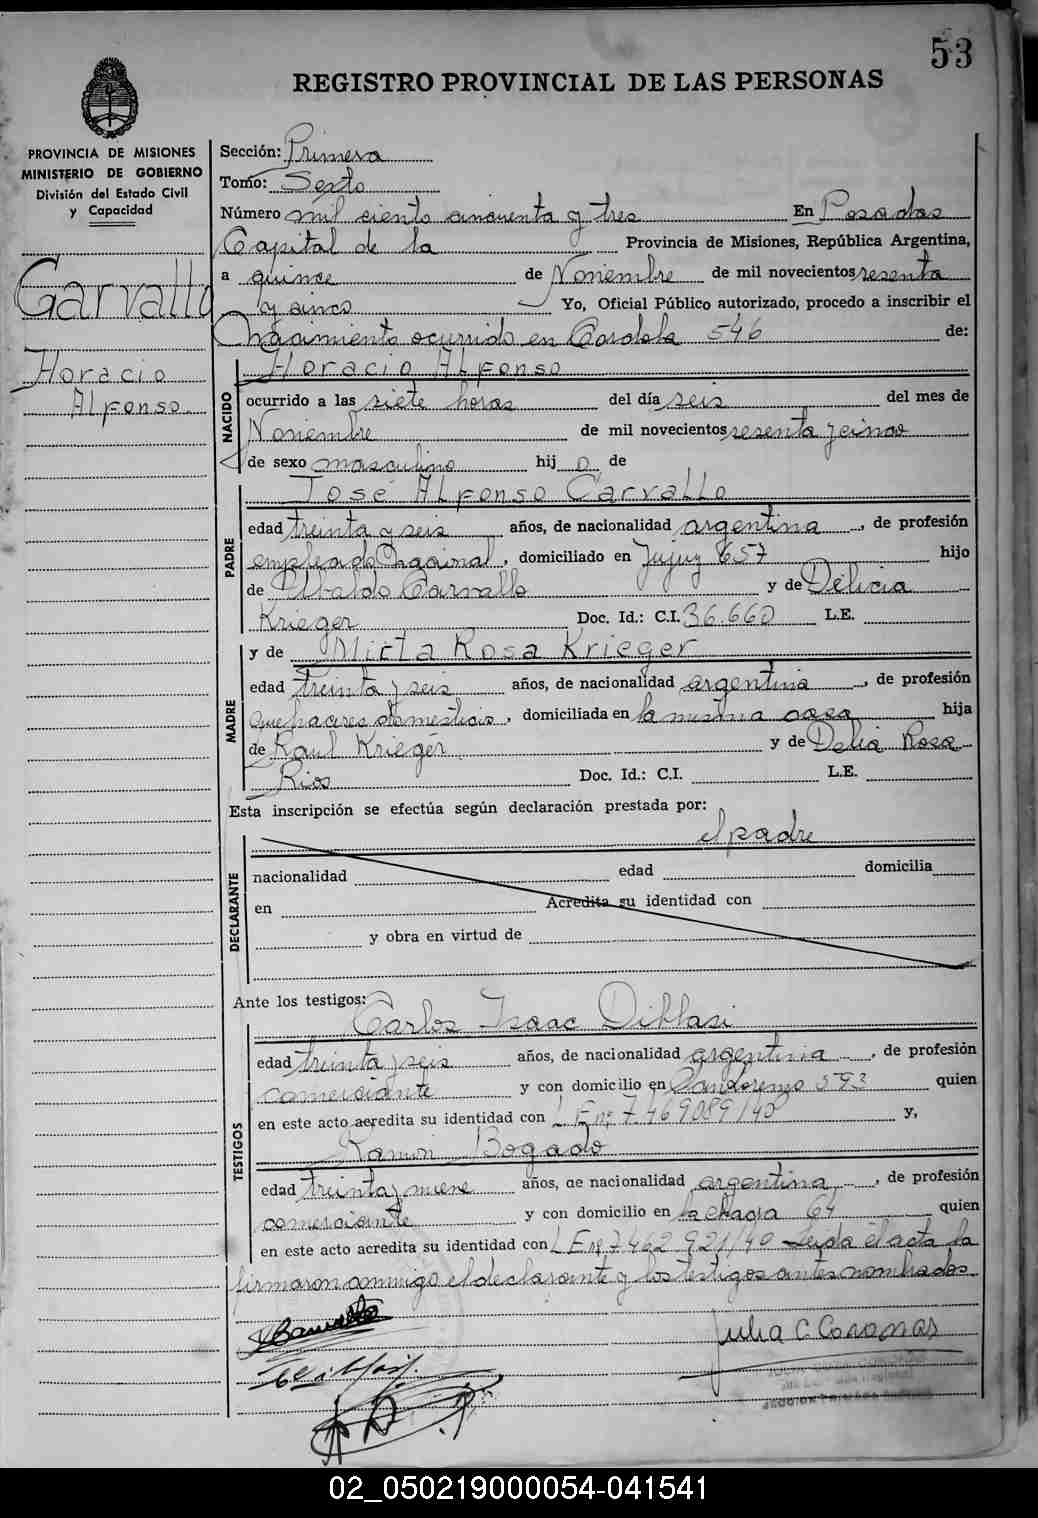 53
REGISTRO PROVINCIAL DE LAS PERSONAS
PROVINCIA DE MISIONES
MINISTERIO DE GOBIERNO
División del Estado Civil
y Capacidad
Carvallo
Horacio
Alfonso
Sección: Primera
Tomo: Sexto
Número mil ciento cincuenta y tres En Posadas
Capital de la Provincia de Misiones, República Argentina,
a quince de Noviembre de mil novecientos sesenta
y cinco Yo, Oficial Público autorizado, procedo a inscribir el
Nacimiento ocurrido en Cordoba 546 de:
NACIDO
Horacio Alfonso
ocurrido a las siete horas del día seis del mes de
Noviembre de mil novecientos sesenta y cinco
de sexo masculino hijo de
PADRE
José Alfonso Carvallo
edad treinta y seis años, de nacionalidad argentina, de profesión
empleado Nacional, domiciliado en Jujuy 657 hijo
de Ubaldo Carvallo y de Delicia
Krieger Doc. Id.: C.I. 36.660 L.E.
MADRE
y de Mirta Rosa Krieger
edad treinta y seis años, de nacionalidad argentina, de profesión
quehaceres domesticos, domiciliada en la misma casa hija
de Raul Krieger y de Delia Rosa
Rios Doc. Id.: C.I. L.E.
Esta inscripción se efectúa según declaración prestada por:
el padre
DECLARANTE
nacionalidad edad domicilia
en Acredita su identidad con
y obra en virtud de
Ante los testigos:
TESTIGOS
Carlos Isaac Diblasi
edad treinta y seis años, de nacionalidad argentina, de profesión
comerciante y con domicilio en quien
en este acto acredita su identidad con L En° 7.469089/40 y,
Ramon Bogado
edad treinta y nueve años, de nacionalidad argentina, de profesión
comerciante y con domicilio en la chacra 64 quien
en este acto acredita su identidad con L En° 7462921/40 Leida el acta la
firmaron conmigo el declarante y los testigos antes nombrados
Julia C Coronas
02_050219000054-041541